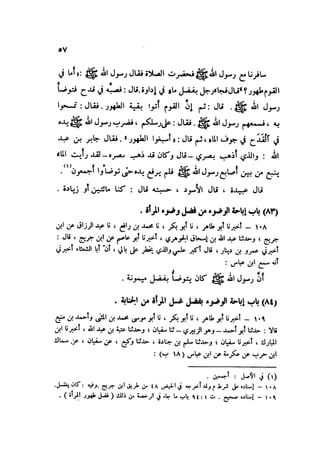 ٥٧
سافرنا مع رسول الله ﷺ فحضرت الصلاة فقال رسول الله ﷺ : « أما في
القوم طهور ؟ » قال : فجاء رجل بفضل ماء في إداوة . قال : فصبّه في قدح فتوضأ
رسول الله ﷺ . قال : ثم إنّ القوم أتوا بقية الطهور . فقال : تمسحوا
به ، فسمعهم رسول الله ﷺ . فقال : على رسلكم ، فضرب رسول الله ﷺ يده
في القدح في جوف الماء ، ثم قال : « أسبغوا الطهور » . فقال جابر بن عبد
الله : والذي أذهب بصري – قال وكان قد ذهب بصره – لقد رأيت الماء
ينبع من بين أصابع رسول الله ﷺ فلم يرفع يده حتى توضأوا أجمعون(١) .
قال عبيدة ، قال الأسود ، حسبته قال : كنا مائتين أو زيادة .
(٨٣) باب إباحة الوضوء من فضل وضوء المرأة .
١٠٨ – أخبرنا أبو طاهر ، نا أبو بكر ، نا محمد بن رافع ، نا عبد الرزاق عن ابن
جريج ؛ وحدثنا عبد الله بن إسحاق الجوهري ، أخبرنا أبو عاصم عن ابن جريج ، قال :
أخبرني عمرو بن دينار ، قال أكبر علمي والذي يخطر على بالي ، أن أبا الشعثاء أخبرني
أنه سمع ابن عباس :
أن رسول الله ﷺ كان يتوضأ بفضل ميمونة .
(٨٤) باب إباحة الوضوء بفضل غسل المرأة من الجنابة .
١٠٩ – أخبرنا أبو طاهر ، نا أبو بكر ، نا أبو موسى محمد بن المثنى وأحمد بن منيع
قالا : حدثنا أبو أحمد – وهو الزبيري – ثنا سفيان ؛ وحدثنا عتبة بن عبد الله ، أخبرنا ابن
المبارك ، أخبرنا سفيان ؛ وحدثنا سلم بن جنادة ، حدثنا وكيع ، عن سفيان ، عن سماك
ابن حرب عن عكرمة عن ابن عباس (١٨ ب) :
(١) في الأصل : أجمعين .
١٠٨ – إسناده على شرط م وقد أخرجه في الحيض ٤٨ من طريق ابن جريج . وفيه : كان يغتسل .
١٠٩ – إسناده صحيح . ت ١ : ٩٤ باب ما جاء في الرخصة من ذلك ( فضل طهور المرأة ) .